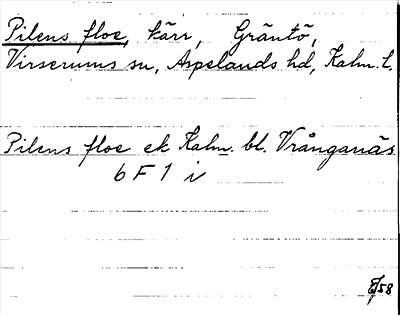 Pilens floe, kärr, Gräntö,
Virserums sn, Aspelands hd, Kalm. l.
Pilens floe ek Kalm. bl. Vrånganäs
6 F 1 i
58